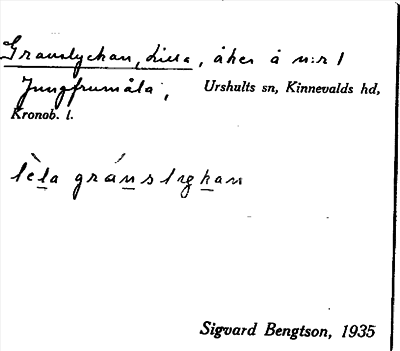 Granslyckan, Lilla, åker å n:r 1
Jungfrumåla, Urshults sn, Kinnevalds hd,
Kronob. l.
lèla gránslykan
Sigvard Bengtson, 1935